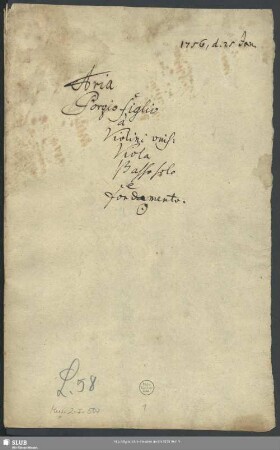 1756, d. 25 Jan
Aria
Porgio figlio
à
Violini unis:
Viola
Basso solo
e
fondamento.
L. 58
SLUB